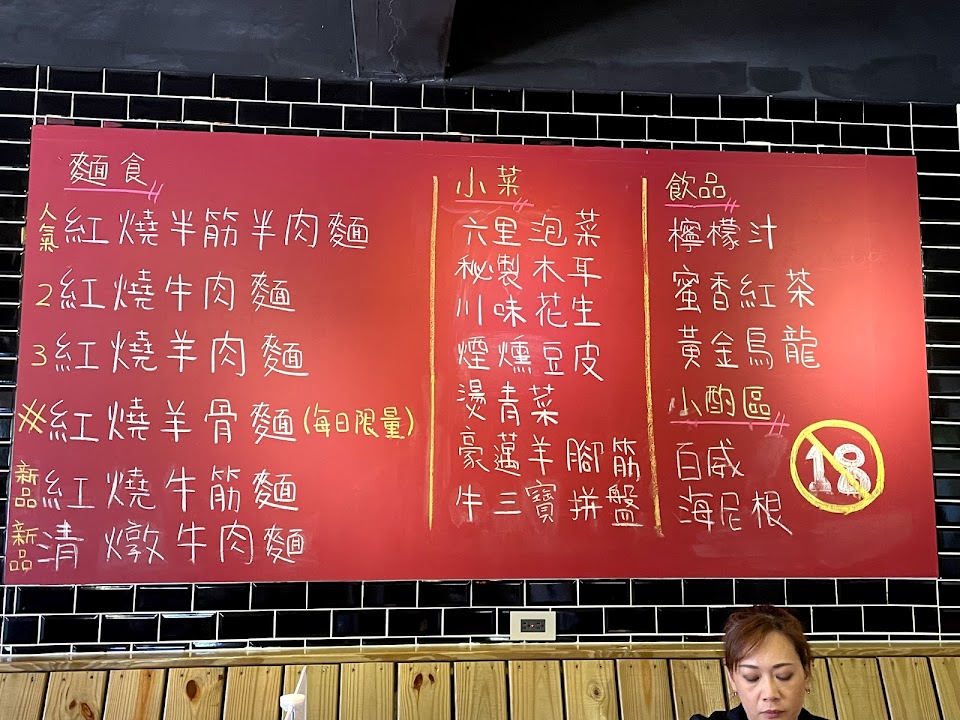 麵食
人氣 紅燒半筋半肉麵
2 紅燒牛肉麵
3 紅燒羊肉麵
※紅燒羊骨麵(每日限量)
新品 紅燒牛筋麵
新品 清燉牛肉麵
小菜
六里泡菜
秘製木耳
川味花生
煙燻豆皮
燙青菜
豪邁羊腳筋
牛三寶拼盤
飲品
檸檬汁
蜜香紅茶
黃金烏龍
小酌區
百威
海尼根
18